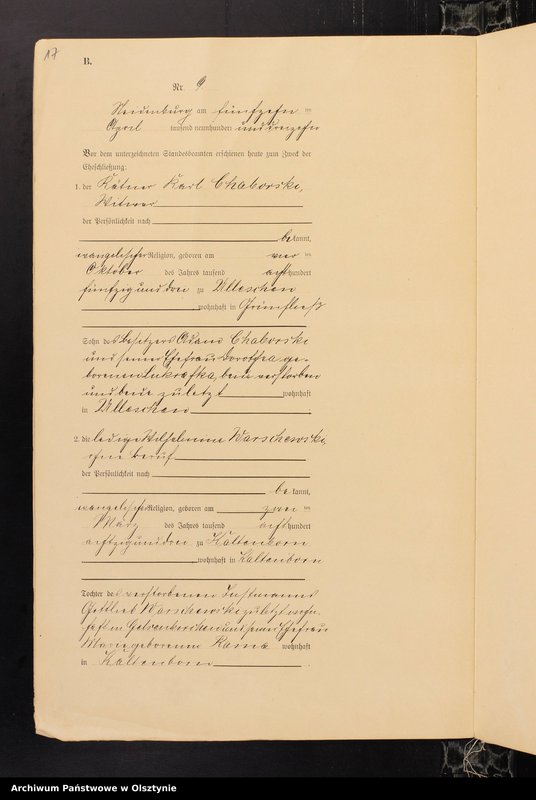 17
B.
Nr. 9
Neidenburg am fünfzehn ten
April tausend neunhundert und dreizehn
Vor dem unterzeichneten Standesbeamten erschienen heute zum Zweck der
Eheschließung:
1. der Kätner Karl Chaborski,
Witwer
der Persönlichkeit nach
bekannt,
evangelischer Religion, geboren am vier ten
Oktober des Jahres tausend achthundert
fünfzig und drei zu Ulleschen
wohnhaft in Grünfließ
Sohn des Besitzers Adam Chaborski
und seiner Ehefrau Dorothea ge-
borenen beide verstorben
und beide zuletzt wohnhaft
in Ulleschen
2. die ledige Wilhelmine Warschewski,
ohne Beruf
der Persönlichkeit nach
bekannt,
evangelischer Religion, geboren am zwei ten
März des Jahres tausend achthundert
achtzig und drei zu Kaltenborn
wohnhaft in Kaltenborn
Tochter des verstorbenen Instmanns
Gottlieb Warschewski zuletzt wohn-
haft in Gelsenkirchen und seiner Ehefrau
Marie geborenen wohnhaft
in Kaltenborn
Archiwum Państwowe w Olsztynie